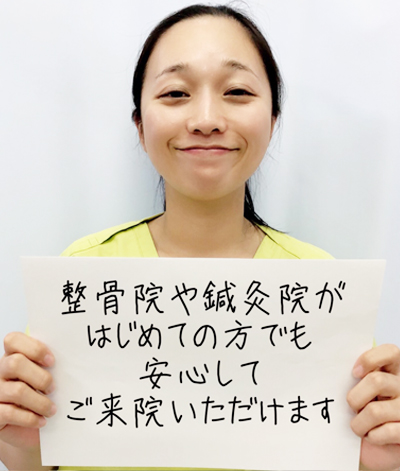 整骨院や鍼灸院が
はじめての方でも
安心して
ご来院いただけます